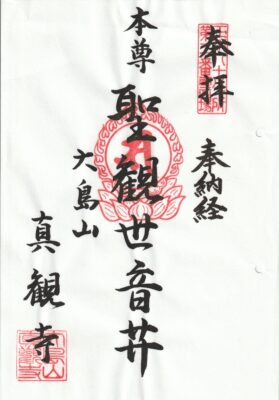 奉拝
奉納経
本尊
聖観世音芽
大島山
真観寺